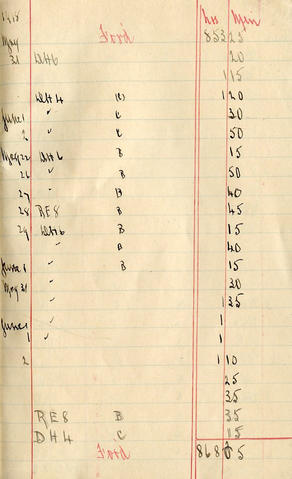 1918 Hrs Min
Fwd 853 25
May
31 DH6 20
1 15
DH4 (C) 1 20
June 1 " C 30
2 " C 50
May 22 DH6 B 15
26 " B 50
27 " B 40
28 RE8 B 45
29 DH6 B 15
" B 40
June 1 " B 15
May 31 " 30
" 1 35
June 1 " 1
1 " 1
2 1 10
25
35
RE8 B 35
DH4 C 15
Fwd 868 05